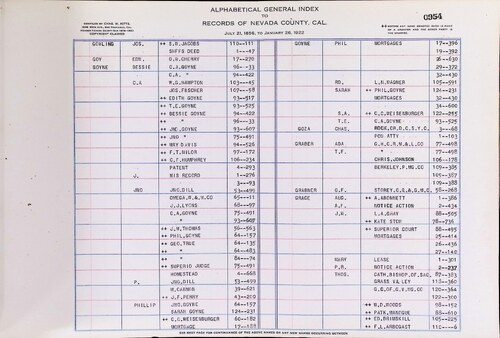 ALPHABETICAL GENERAL INDEX
TO
RECORDS OF NEVADA COUNTY, CAL.
JULY 21, 1856, TO JANUARY 26, 1922
COMPILED BY CHAS. W. KITTS
COPYRIGHT CLAIMED
0954
GOWLING JOS. ++ S.R.JACOBS 110--111 GOYNE PHIL MORTGAGES 17--396
DIFFS DEED 1--47 19--392
GOY EDW. D.H.CHERRY 17--270 --630
GOYNE BESSIE C.A.GOYNE 96--33 29--372
C.A. " 94--422 32--430
C.A W.G.HAMPTON 103--45 RD. L.N.DAGNER 105--591
JOS.FLEICHER 107--58 SARAH ++ PHIL.GOYNE 124--231
++ EDITH GOYNE 93--517 MORTGAGES 32--436
++ T.E.GOYNE 93--525 34--600
++ BESSIE GOYNE 94--422 S.A. ++ C.G.WEISENBURGER 122--215
++ " 96--33 T.E. C.A.GOYNE 93--525
++ JNO.GOYNE 93--607 GOZA CHAS. ROCK,CR.D.C.S.Y.C. 3--68
++ JNO " 75--491 POS.ATTY 1--101
++ MAY DAVIS 94--526 GRABER ADA G.H.C.R.M.& L.CO 77--498
++ F.T.NILER 97--172 T.F. " 77--498
++ C.F.HUMPHREY 106--234 CHRIS.JOHNSON 106--178
PATENT 4--293 BERKELEY,F.MG.CO 109--305
J. MIS RECORD 1--276 109--387
3--93 109--388
JNO JNO.GILL 53--499 GRABNER G.F. STOREY,C.Q.&G.M.C. 58--268
OMEGA.R.&.W.CO 65--11 GRACE AUG ++ A.ABONNETT 1--386
J.J.LYONS 68--497 A.F. NOTICE ACTION 2--434
C.A.GOYNE 75--491 J.H. L.A.GRAY 88--505
" 93--607 ++ KATE STOR 78--736
++ J.W.THOMAS 56--563 ++ SUPERIOR COURT 88--495
++ PHIL.GOYNE 64--157 MORTGAGES 25--414
++ GEO.TRUE 64--135 26--436
++ " 64--483 27--140
++ " 84--74 MARY LEASE 1--301
++ SUPERIO JUDGE 75--491 P.R. NOTICE ACTION 2--237
HOMESTEAD 4--668 THOS. CATH,BISHOP,OF,SAC. 87--383
P. JNO.GILL 53--499 GRASS VALLEY 118--360
M.CARMAN 39--621 G.G.OF.G.V.MG.CO 120--364
++ J.F.PERRY 43--209 120--300
PHILLIP JNO.GOYNE 64--157 ++ B.D.WOODS 98--152
SARAH GOYNE 124--231 ++ PATK.MCNEGUE 88--610
++ C.G.WEISENBURGER 60--182 ++ ED.BRIMSKILL 105--225
MORTGAGE 17--188 ++ F.L.ARBOGAST 110---6